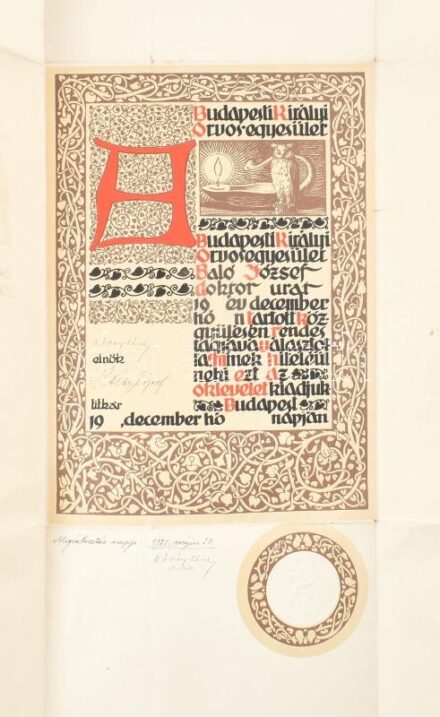 Budapesti Királyi
Orvosegyesület
A
Budapesti Királyi
Orvosegyesület
Baló József
doktor urat
19 év december
hó n tartott köz
gyülésén rendes
tagjává választot
ta, minek hiteléül
neki ezt az
oklevelet kiadjuk
Budapest
elnök
titkár
19 , december hó napján
Megválasztás napja: 1921. május 28.